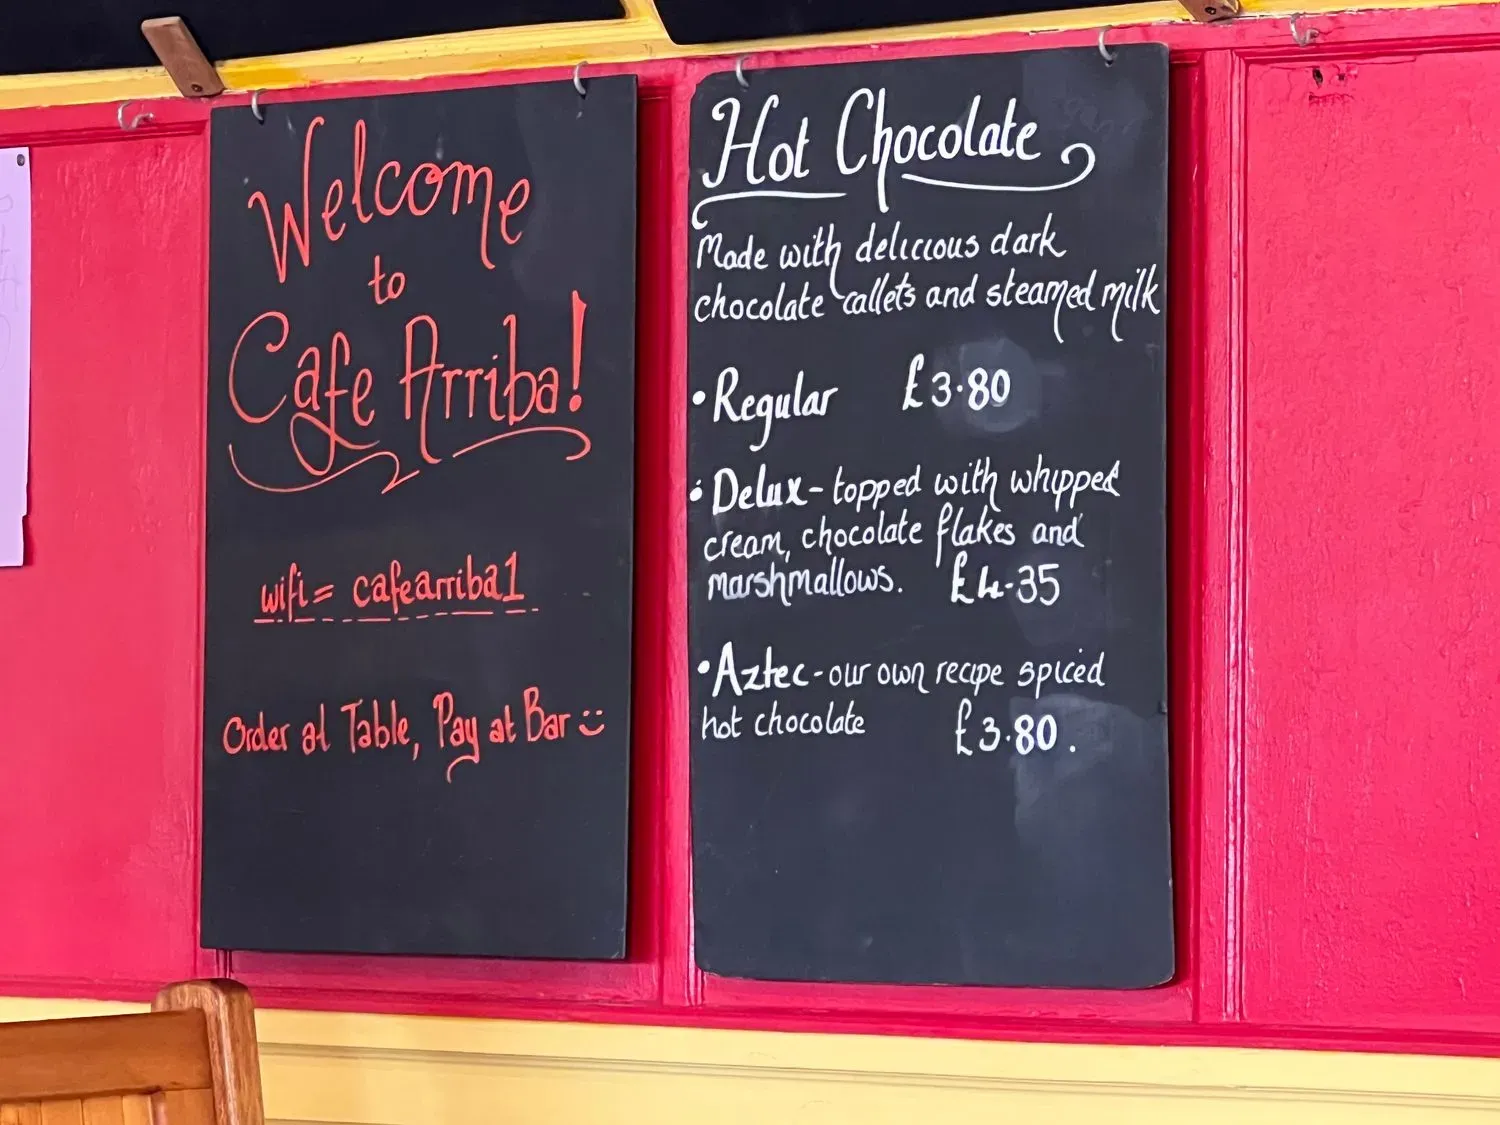 Welcome
to
Cafe Arriba!
wifi = cafearriba1
Order at Table, Pay at Bar :)
Hot Chocolate
Made with delicious dark
chocolate callets and steamed milk
• Regular £3.80
• Delux - topped with whipped
cream, chocolate flakes and
marshmallows. £4.35
• Aztec - our own recipe spiced
hot chocolate £3.80.